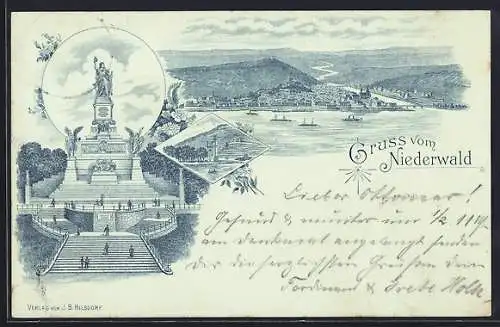 Gruss vom
Niederwald
Lieber Ottomar!
Gesund & munter um 1/2 11 Uhr
am Denkmal angelangt senden
dir die herzlichsten Grüße deine
Ferdinand & Grete
VERLAG VON J. B. HILSDORF.